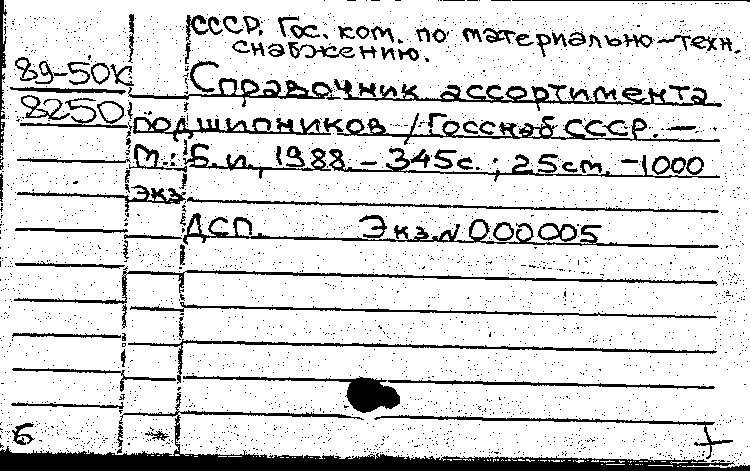 СССР. Гос. ком. по материально-техн.
снабжению.
89-50К
8250
Справочник ассортимента
подшипников / Госснаб СССР. —
М.: Б. и., 1988. – 345с. ; 25 ст. – 1000
экз
ДСП. Экз. № 000005
б